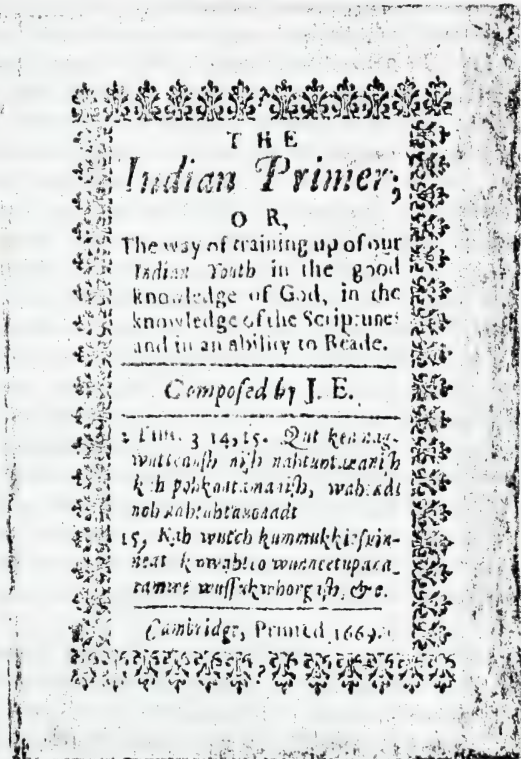 THE
Indian Primer;
OR,
The way of training up of our
Indian Youth in the good
knowledge of God, in the
knowledge of the Scriptures
and in an ability to Reade.
Composed by J. E.
2 Tim. 3 14, 15. Qut kenag-
wutteaush nish nahtuntauanish
kah pohkontamanish, wahеadt
noh
15, Kah wutch kummukkiesuin-
neat kowahteo wunneetupana-
tamwe wussukwhongash, &c.
Cambridge, Printed 1669.